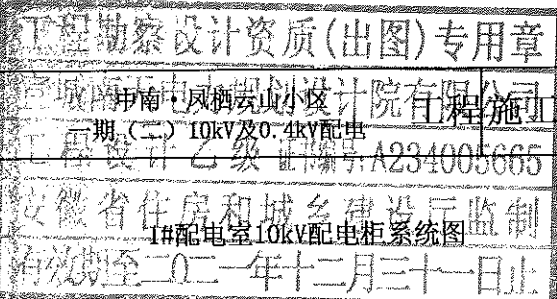 工程勘察设计资质(出图)专用章
电力规划设计院有限公司
中南·凤栖云山小区
工程施工
一期（二）10kV及0.4kV配电
工程设计乙级 证书编号:A234005665
安徽省住房和城乡建设厅监制
1#配电室10kV配电柜系统图
有效期至二〇二一年十二月三十一日止